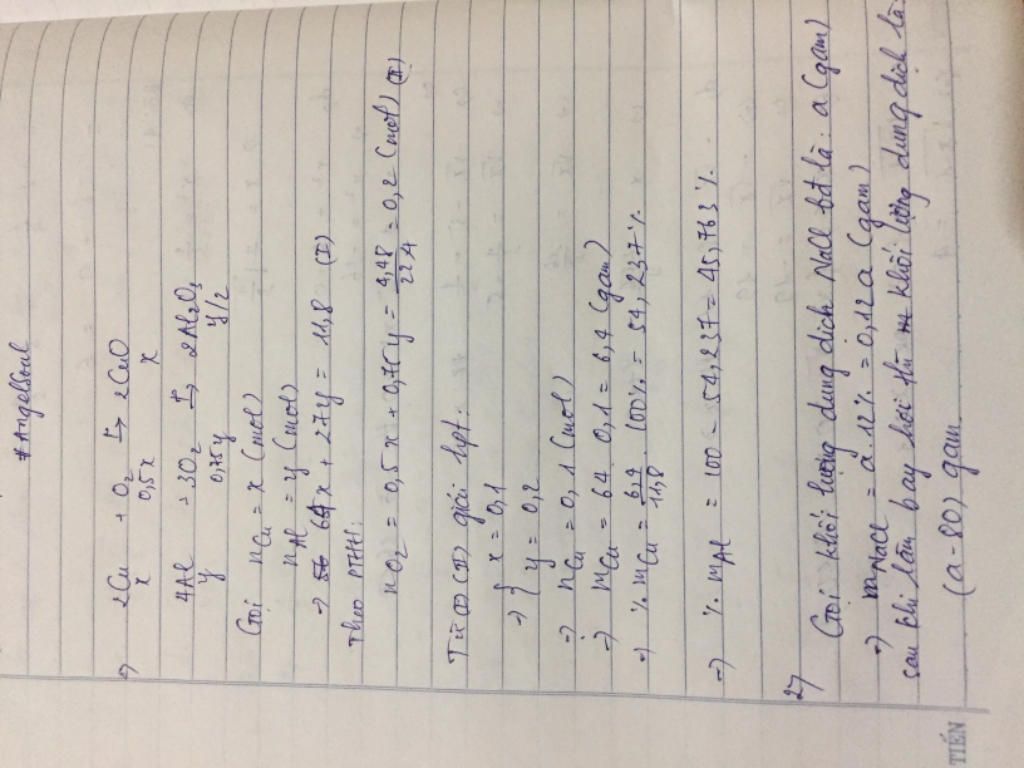 #AngelSoul
→ 2Cu + O₂ t°→ 2CuO
x 0,5x x
4Al + 3O₂ t°→ 2Al₂O₃
y 0,75y y/2
Gọi nCu = x (mol)
nAl = y (mol)
→ 64x + 27y = 11,8 (I)
Theo PTHH:
nO₂ = 0,5x + 0,75y = 4,48/22,4 = 0,2 (mol) (II)
Từ (I) (II) giải hpt:
→ { x = 0,1
y = 0,2
→ nCu = 0,1 (mol)
→ mCu = 64 . 0,1 = 6,4 (gam)
→ % mCu = 6,4/11,8 . 100% = 54,237%
→ % mAl = 100 - 54,237 = 45,763%
27
Gọi khối lượng dung dịch NaCl bđ là : a (gam)
→ mNaCl = a . 12% = 0,12a (gam)
sau khi làm bay hơi thì khối lượng dung dịch là:
(a-80) gam.
TIẾN